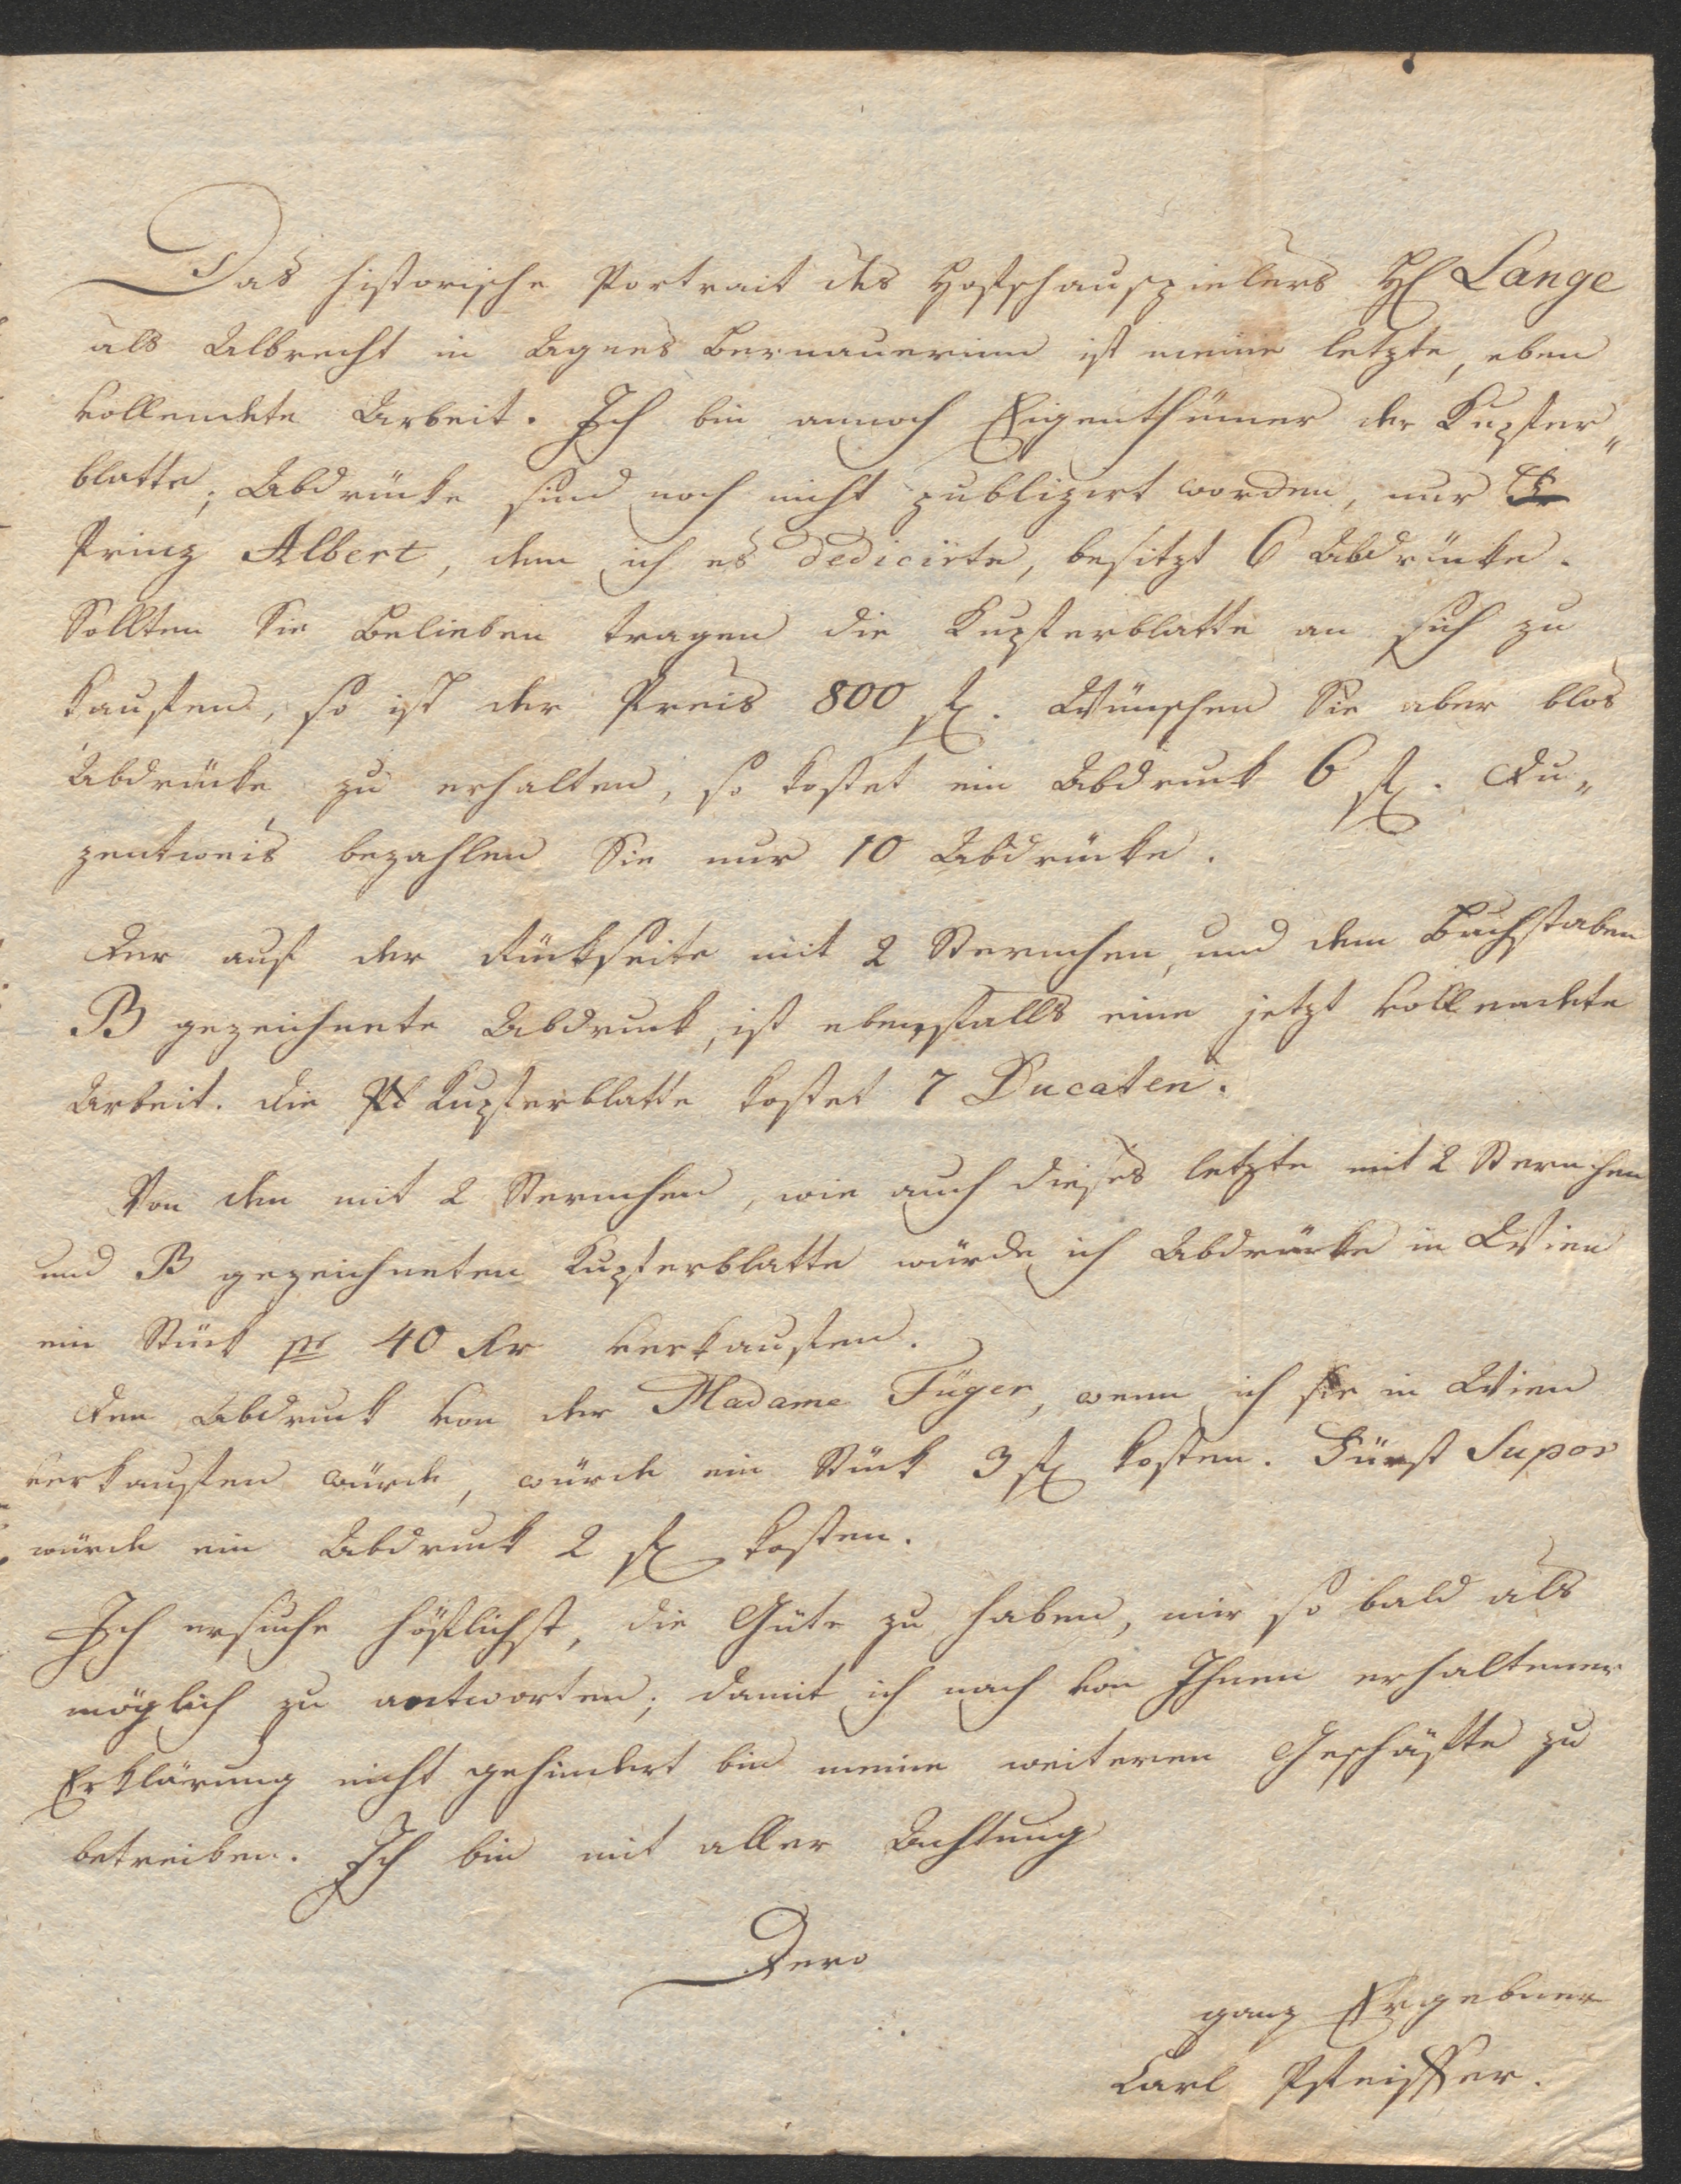 Das historische Portrait des Hofschauspielers H: Lange
als Albrecht in Agnes Bernauerinn ist meine letzte, eben
vollendete Arbeit. Ich bin annoch Eigenthümer der Kupfer„
blatte; Abdrücke sind noch nicht publizirt worden, nur
Prinz Albert, dem ich es dedicirte, besitzt 6 Abdrücke.
Sollten Sie Belieben tragen die Kupferblatte an sich zu
kaufen, so ist der Preis 800 fl. Wünschen Sie aber blos
Abdrücke zu erhalten, so kostet ein Abdruck 6 fl. Du„
zentweis bezahlen Sie nur 10 Abdrücke.
Der auf der Rückseite mit 2 Sternchen, und dem Buchstaben
B gezeichnete Abdruck, ist ebenfalls eine jetzt vollendete
Arbeit. die Kupferblatte kostet 7 Ducaten.
Von dem mit 2 Sternchen, wie auch dieses letzte mit 2 Sternchen
und B gezeichneten Kupferblatte würde ich Abdrücke in Wien
ein Stück pr 40 Kr verkaufen.
Den Abdruck von der Madame Füger, wenn ich sie in Wien
verkaufen würde, würde ein Stück 3 fl kosten. Fürst Supor
würde ein Abdruck 2 fl kosten.
Ich ersuche höflichst, die Güte zu haben, mir so bald als
möglich zu antworten; damit ich nach von Ihnen erhaltener
Erklärung nicht gehindert bin meine weiteren Geschäfte zu
betreiben. Ich bin mit aller Achtung
Dero
ganz Ergebner
Carl Pfeiffer.